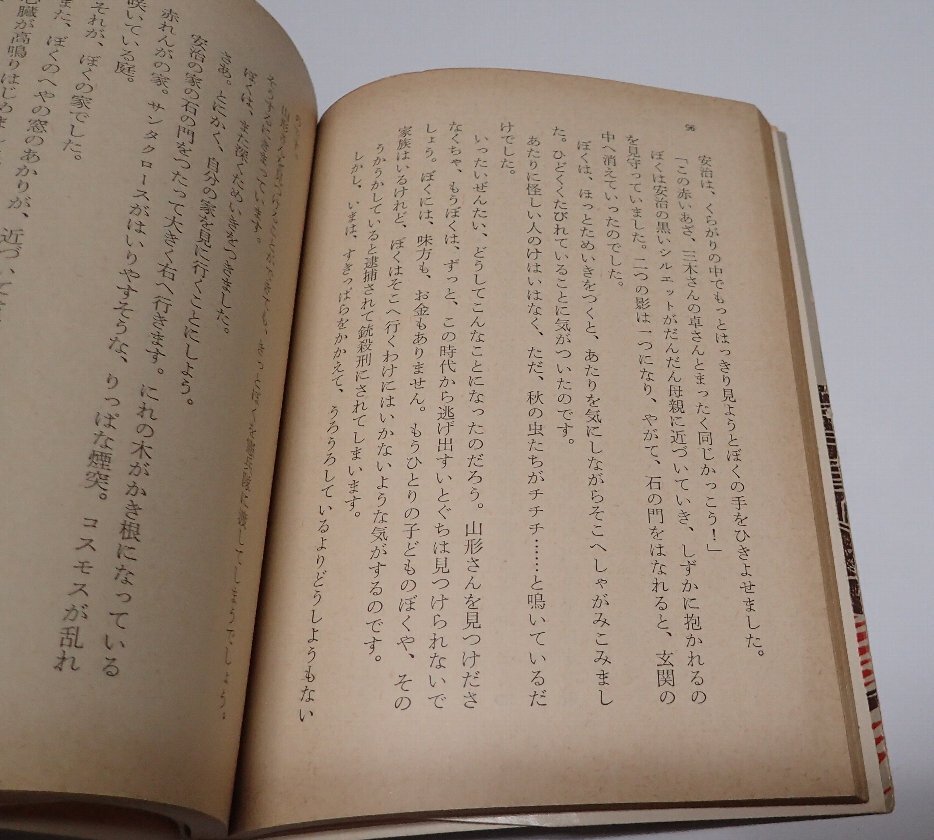 96
安治は、くらがりの中でもっとはっきり見ようとぼくの手をひきよせました。
「この赤いあざ、三木さんの卓さんとまったく同じかっこう！」
ぼくは安治の黒いシルエットがだんだん母親に近づいていき、しずかに抱かれるの
を見守っていました。二つの影は一つになり、やがて、石の門をはなれると、玄関の
中へ消えていったのでした。
ぼくは、ほっとためいきをつくと、あたりを気にしながらそこへしゃがみこみまし
た。ひどくくたびれていることに気がついたのです。
あたりに怪しい人のけはいはなく、ただ、秋の虫たちがチチチ……と鳴いているだ
けでした。
いったいぜんたい、どうしてこんなことになったのだろう。山形さんを見つけださ
なくちゃ、もうぼくは、ずっと、この時代から逃げ出すいとぐちは見つけられないで
しょう。ぼくには、味方も、お金もありません。もうひとりの子どものぼくや、その
家族はいるけれど、ぼくはそこへ行くわけにはいかないような気がするのです。
うかうかしていると逮捕されて銃殺刑にされてしまいます。
しかし、いまは、すきっぱらをかかえて、うろうろしているよりどうしようもない
そうするにきまっています。
ぼくは、また深くためいきをつきました。
さあ。とにかく、自分の家を見に行くことにしよう。
安治の家の石の門をつたって大きく右へ行きます。にれの木がかき根になっている
赤れんがの家。サンタクロースがはいりやすそうな、りっぱな煙突。コスモスが乱れ
咲いている庭。
それが、ぼくの家でした。
また、ぼくのへやの窓のあかりが、近づいて
心臓が高鳴りはじめまし